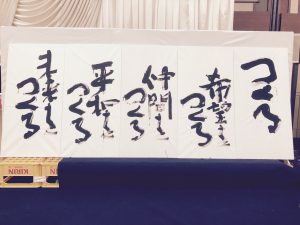 つくる
希望を
つくる
仲間を
つくる
平和を
つくる
未来を
つくる
KIRIN